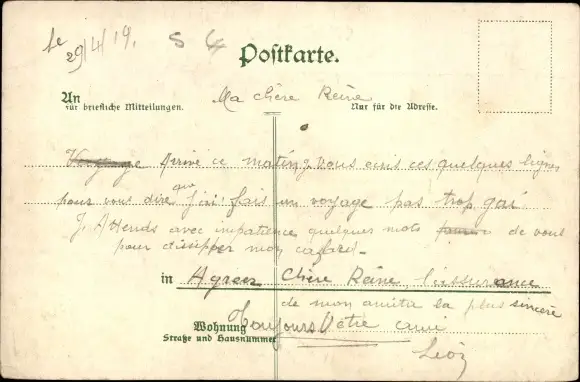 Le 29/4/19.
Postkarte.
An
für briefliche Mitteilungen.
Nur für die Adresse.
Ma chère Reine
Arrivé ce matin, je vous écris ces quelques lignes
pour vous dire que j'ai fais un voyage pas trop gai.
J'Attends avec impatience quelques mots de vous
pour dissipper mon cafard.
in Agreez Chère Reine, l'assurance
de mon amitié la plus sincère
Toujours Votre ami
Wohnung
Straße und Hausnummer
Léon